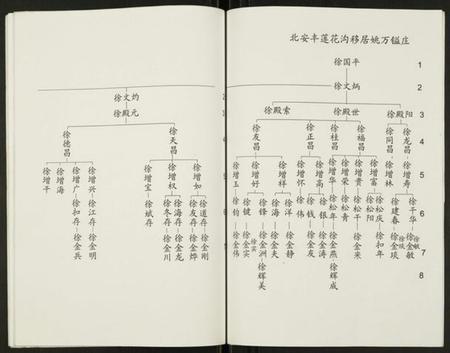 北安丰莲花沟移居姚万镒庄
徐国平
1
徐文炳
2
徐殿阳
徐殿世
徐殿索
3
徐龙昌
徐同昌
徐福昌
徐桂昌
徐正昌
徐友昌
4
徐增寿
徐增林
徐增富
徐增贵
徐增荣
徐增华
徐增高
徐增怀
徐增祥
徐增好
徐增玉
5
徐干华
徐建春
徐松庆
徐松阳
徐干年
徐松青
徐松年
徐银
徐钱
徐伟
徐洋
徐海
徐锋
徐键
徐钧
6
徐敏
徐金敏
徐琰
徐金琰
徐扣年
徐金来
徐金燕
徐金涛
徐金友
徐金静
徐金夫
徐金洲
徐宾
徐金实
徐金伟
7
徐辉成
徐辉美
8
徐文灼
2
徐殿元
3
徐天昌
徐德昌
徐增如
徐增权
徐增宝
徐增兴
徐增广
徐增海
徐增干
徐道存
徐友存
徐海存
徐冬存
徐斌存
徐江存
徐扣存
徐金刚
徐金烨
徐金龙
徐金川
徐金明
徐金兵